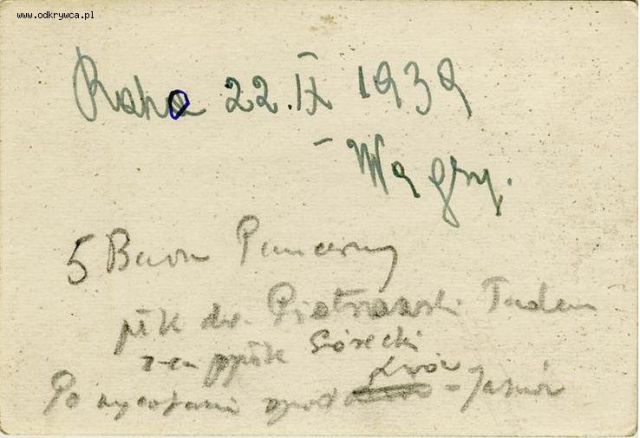 www.odkrywca.pl
Raho 22.IX 1939
Węgry.
5 Baon Pancerny
płk dr. Piotrowski Tadeu
z-ca ppłk Górecki
Po wycofaniu spod Lwów - Janów